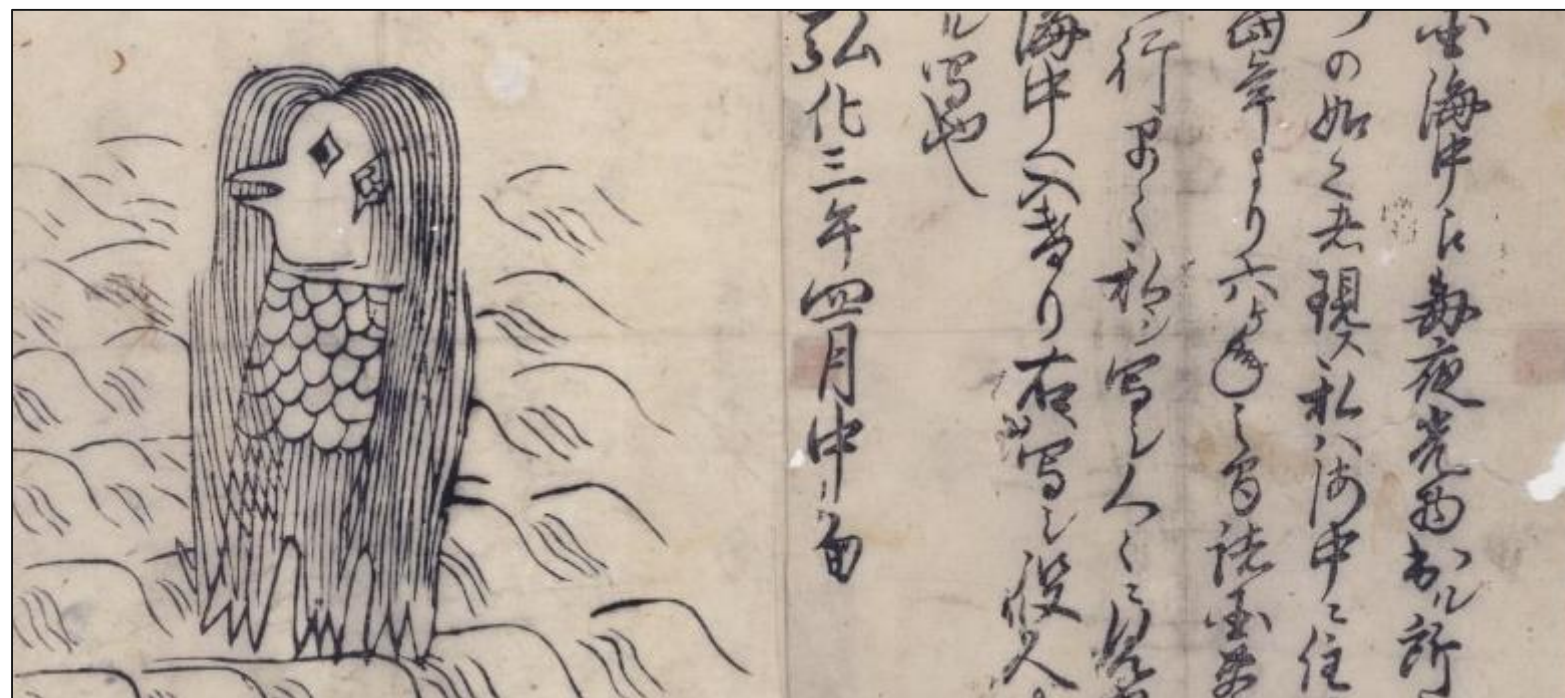 国海中え毎夜光物出ル所
づの如く者現ス私ハ海中ニ住
当年より六ヶ年之間諸国豊
行早々私シ写シ人々ニ見
海中へ入けり右写シ役人
ル写也
弘化三年四月中旬